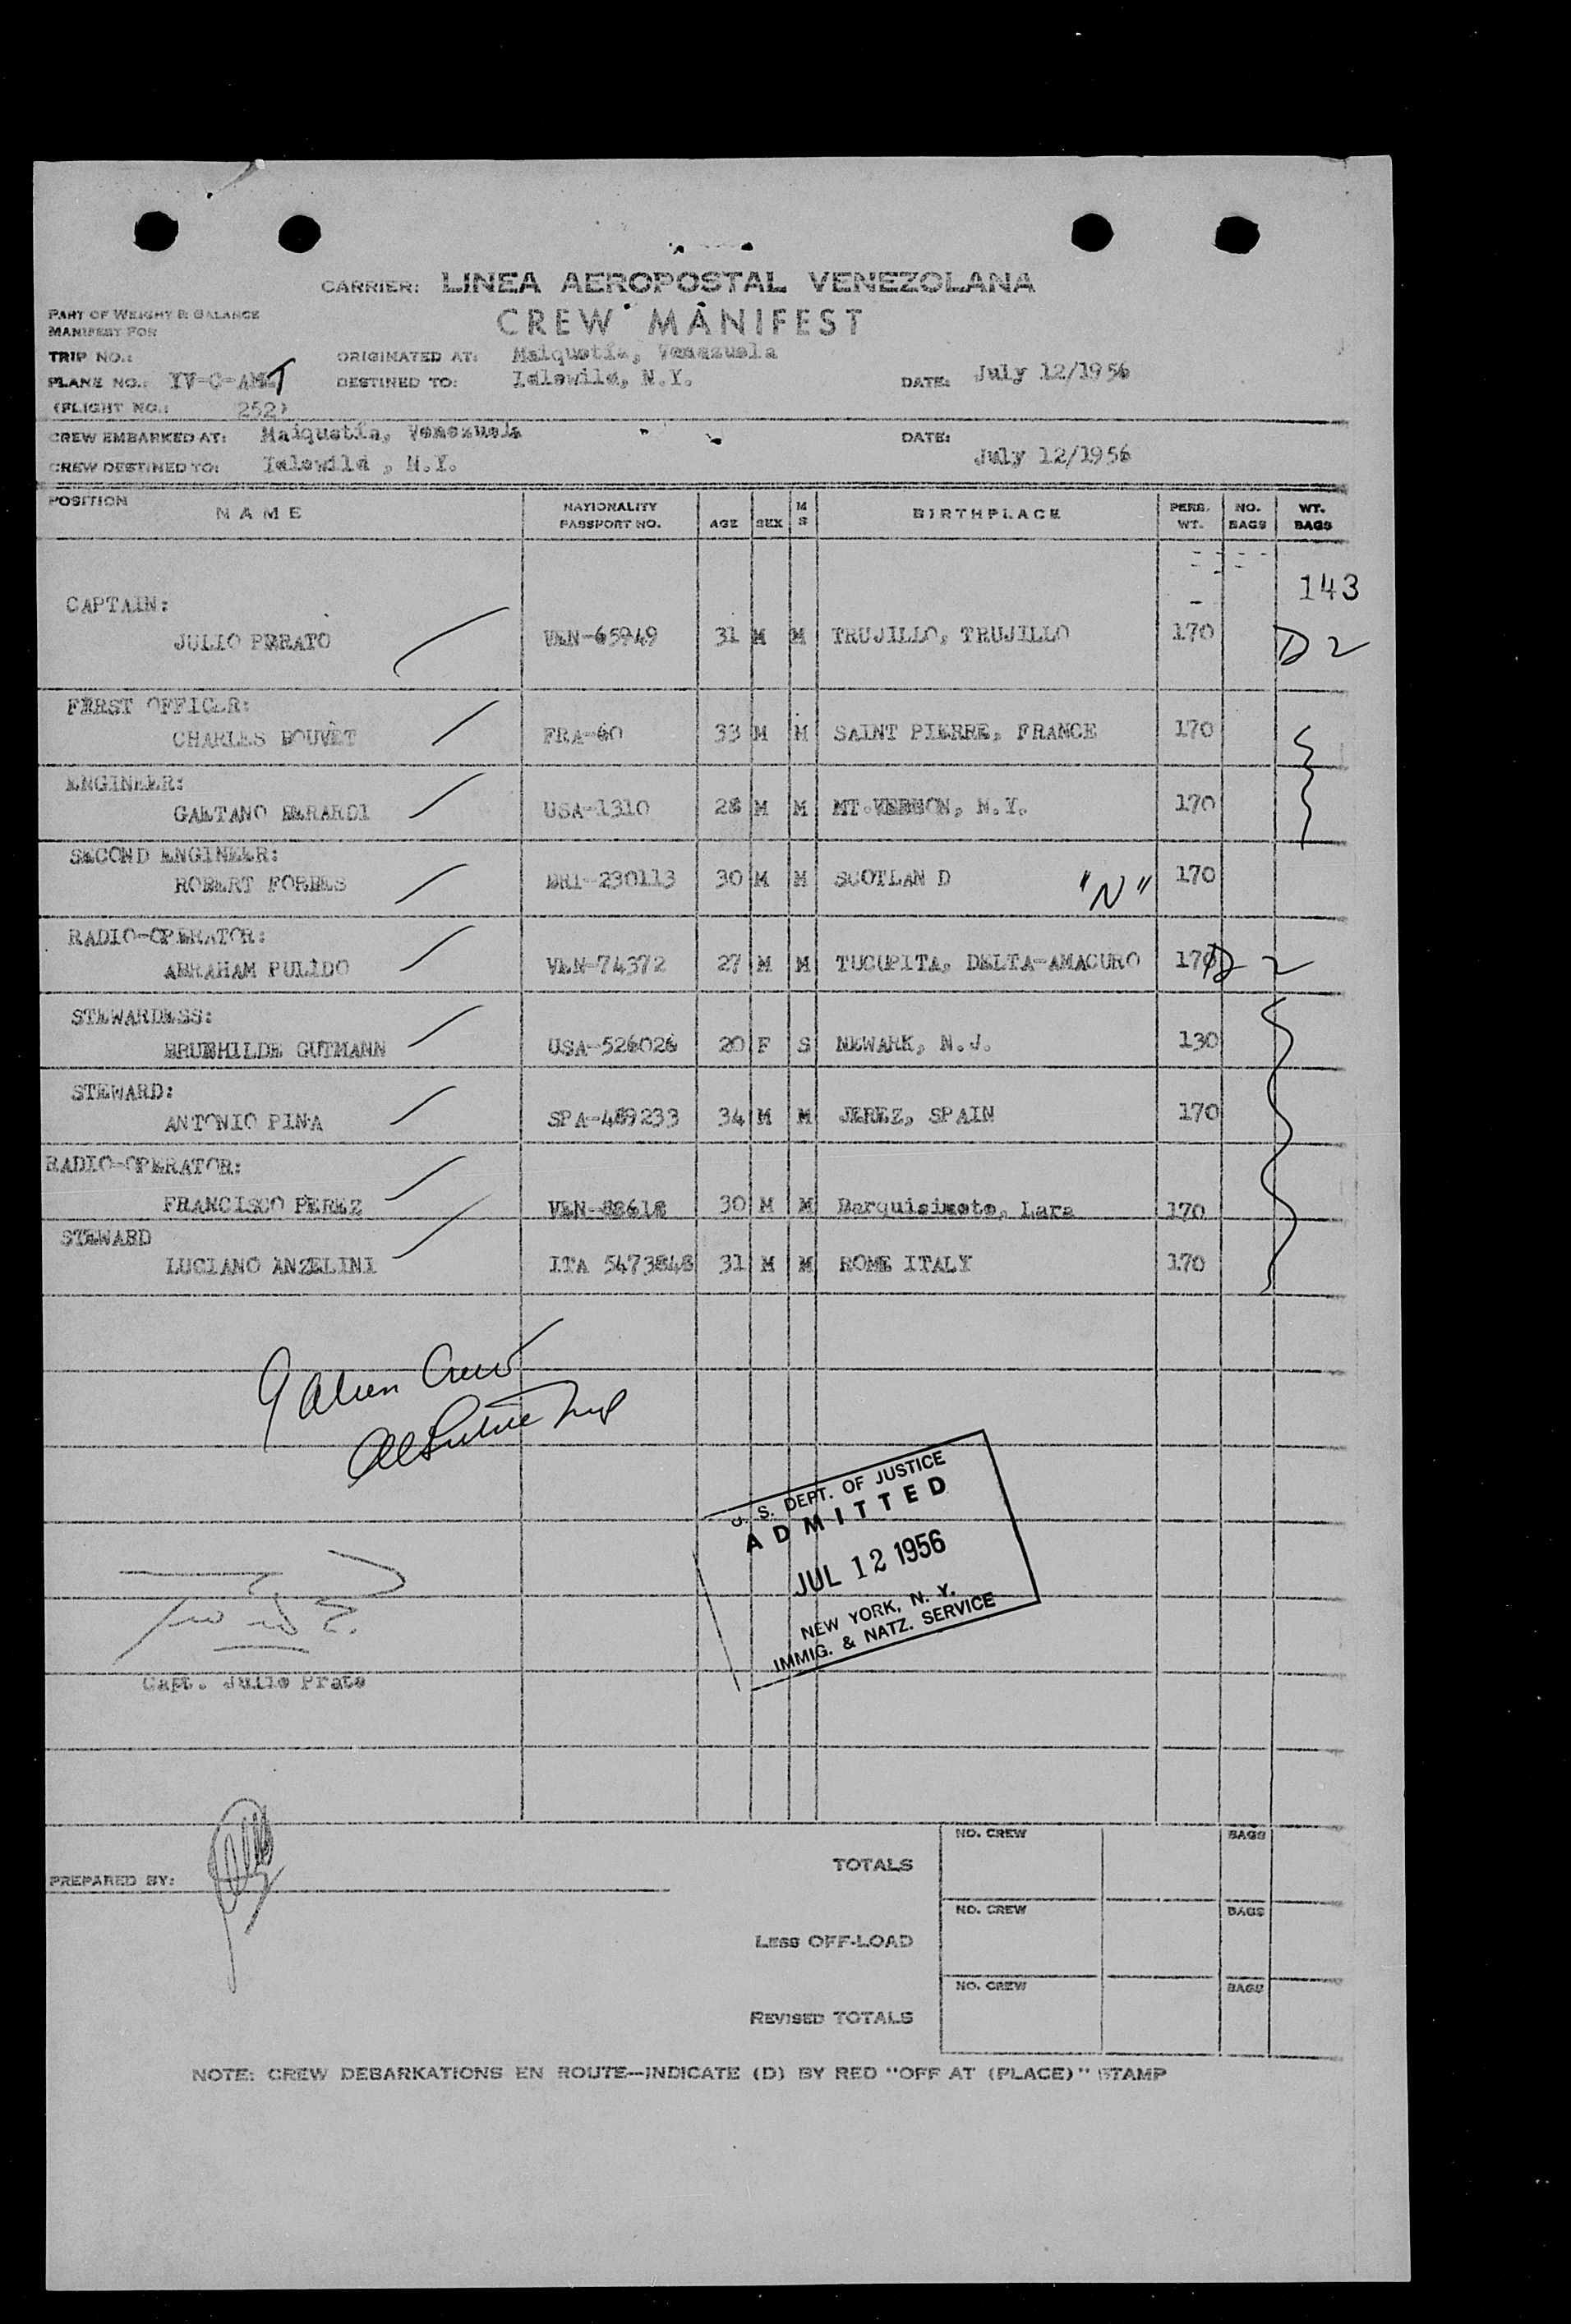 CARRIER: LINEA AEROPOSTAL VENEZOLANA
PART OF WEIGHT & BALANCE
MANIFEST FOR
CREW MANIFEST
TRIP NO.: ORIGINATED AT: Maiquetia, Venezuela
PLANE NO.: YV-C-AMT DESTINED TO: Idlewild, N.Y. DATE: July 12/1956
(FLIGHT NO.: 252)
CREW EMBARKED AT: Maiquetia, Venezuela DATE:
CREW DESTINED TO: Idlewild , N.Y. July 12/1956
POSITION NAME NATIONALITY PASSPORT NO. AGE SEX M S BIRTHPLACE PERS. WT. NO. BAGS WT. BAGS
143
CAPTAIN:
JULIO PERATO VEN-65949 31 M M TRUJILLO, TRUJILLO 170 D 2
FIRST OFFICER:
CHARLES BOUVET FRA-60 33 M M SAINT PIERRE, FRANCE 170
ENGINEER:
GAETANO BERARDI USA-1310 28 M M MT.VERNON, N.Y. 170
SECOND ENGINEER:
ROBERT FORBES BRI-230113 30 M M SCOTLAN D "N" 170
RADIO-OPERATOR:
ABRAHAM PULIDO VEN-74372 27 M M TUCUPITA, DELTA-AMACURO 170 D 2
STEWARDESS:
BRUNHILDE GUTMANN USA-526026 20 F S NEWARK, N.J. 130
STEWARD:
ANTONIO PINA SPA-489233 34 M M JEREZ, SPAIN 170
RADIO-OPERATOR:
FRANCISCO PEREZ VEN-88618 30 M M Barquisimeto, Lara 170
STEWARD
LUCIANO ANZELINI ITA 5473848 31 M M ROME ITALY 170
9 alien Crew
U. S. DEPT. OF JUSTICE
ADMITTED
JUL 12 1956
NEW YORK, N. Y.
IMMIG. & NATZ. SERVICE
Capt. Julio Prato
PREPARED BY:
NO. CREW BAGS
TOTALS
NO. CREW BAGS
LESS OFF-LOAD
NO. CREW BAGS
REVISED TOTALS
NOTE: CREW DEBARKATIONS EN ROUTE—INDICATE (D) BY RED "OFF AT (PLACE)" STAMP